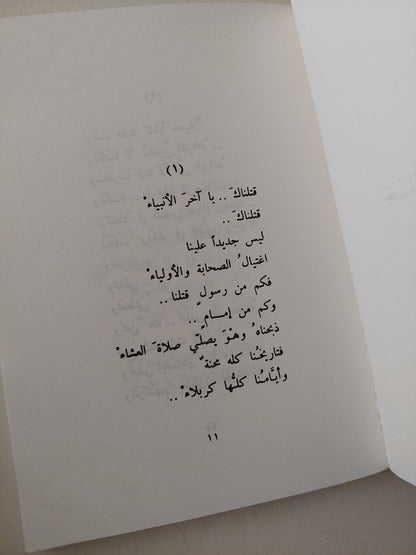 (١)
قتلناكَ .. يا آخرَ الأنبياءْ
قتلناكَ ..
ليس جديداً علينا
اغتيالُ الصحابة والأولياءْ
فكم من رسولٍ قتلنا ..
وكم من إمامٍ ..
ذبحناهُ وهْوَ يصلّي صلاةَ العشاءْ
فتاريخُنا كله محنةٌ
وأيَّامُنا كلُّها كربلاءْ ..
١١